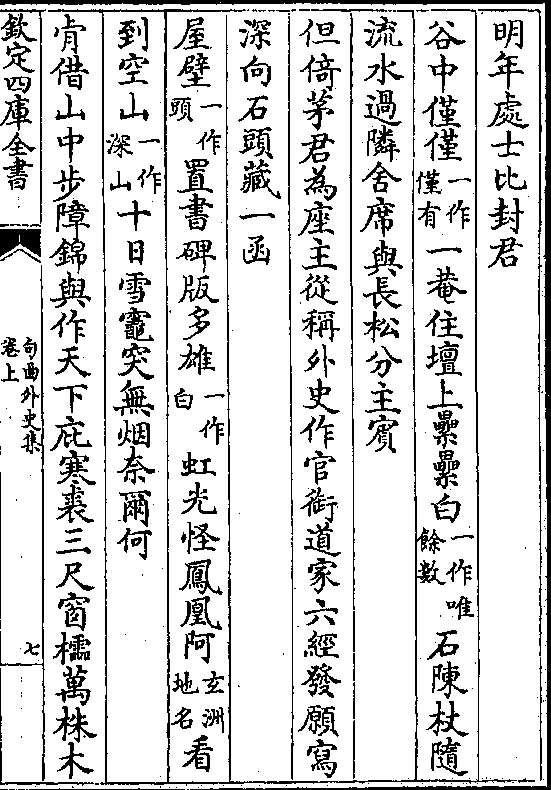 明年處士比封君
谷中僅僅一作僅有一菴住壇上纍纍白一作唯餘數石陳杖隨
流水過隣舍席與長松分主賓
但倚茅君為座主從稱外史作官銜道家六經發願寫
深向石頭藏一函
屋壁一作頭置書碑版多雄一作白虹光怪鳳凰阿玄洲地名看
到空山一作深山十日雪竈突無烟奈爾何
肯借山中步障錦與作天下庇寒裘三尺窗櫺萬株木
欽定四庫全書
句曲外史集
卷上
七